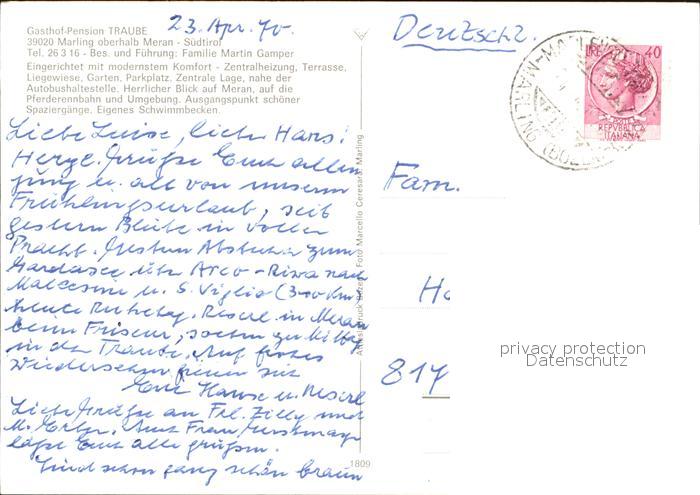 Gasthof-Pension TRAUBE
39020 Marling oberhalb Meran - Südtirol
Tel. 26 3 16 - Bes. und Führung: Familie Martin Gamper
Eingerichtet mit modernstem Komfort - Zentralheizung, Terrasse,
Liegewiese, Garten, Parkplatz. Zentrale Lage, nahe der
Autobushaltestelle. Herrlicher Blick auf Meran, auf die
Pferderennbahn und Umgebung. Ausgangspunkt schöner
Spaziergänge. Eigenes Schwimmbecken.
23. Apr. 70.
Liebe Luise, lieber Hans!
Herzl. Grüße Euch allen
jung u. alt von unserm
Frühlingsurlaub, seit
gestern Blüte in voller
Pracht. Gestern Abstecher zum
Gardasee über Arco - Riva nach
Malcesine u. S. Viglio (300 km)
heute Ruhetag. Reserl in Meran
beim Friseur, sodann zu Mittag
in der Traube. Auf frohes
Wiedersehen freuen sich
Eure Hanse u. Reserl
Liebe Grüße an Frl. Zilly und
M. Auch Frau
läßt Euch alle grüßen.
Sind schon ganz schön braun
Foto Marcello Ceresara, Marling
1809
Deutschl.
LIRE 40
POSTE
REPVBBLICA
ITALIANA
MARLENGO
Fam.
Ho
817
privacy protection
Datenschutz